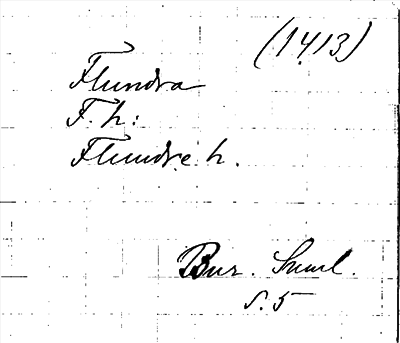 (1413)
Flundra
F. h:
Flundre h.
Bur. Suml.
s. 5